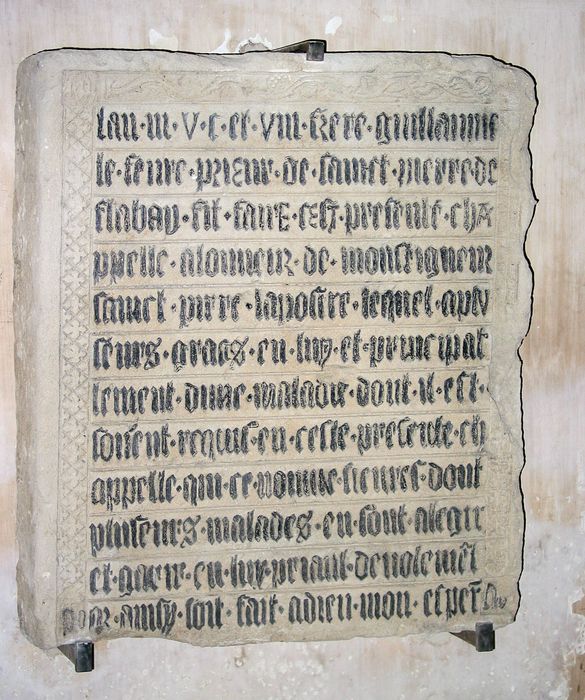 lan · m · V · c · et · VIII · frere · guillaume
le · feure · prieur · de · sainct · pierre · de
flabay · fit · faire · cest · presente · cha
ppelle · alonneur · de · monseigneur
sainct · pierre · lapostre · lequel · aplu
seurs · graces · en · luy · et · principal
lement · dune · maladie · dont · il · est ·
souvent · requis · en · ceste · presente · ch
appelle · qui · ce · nomme · fieures · dont
pluseurs · malades · en · sont · alegir
et · gaerir · en · luy · priant · devotemet
· ainsy · soit · fait · adieu · mon · esperit